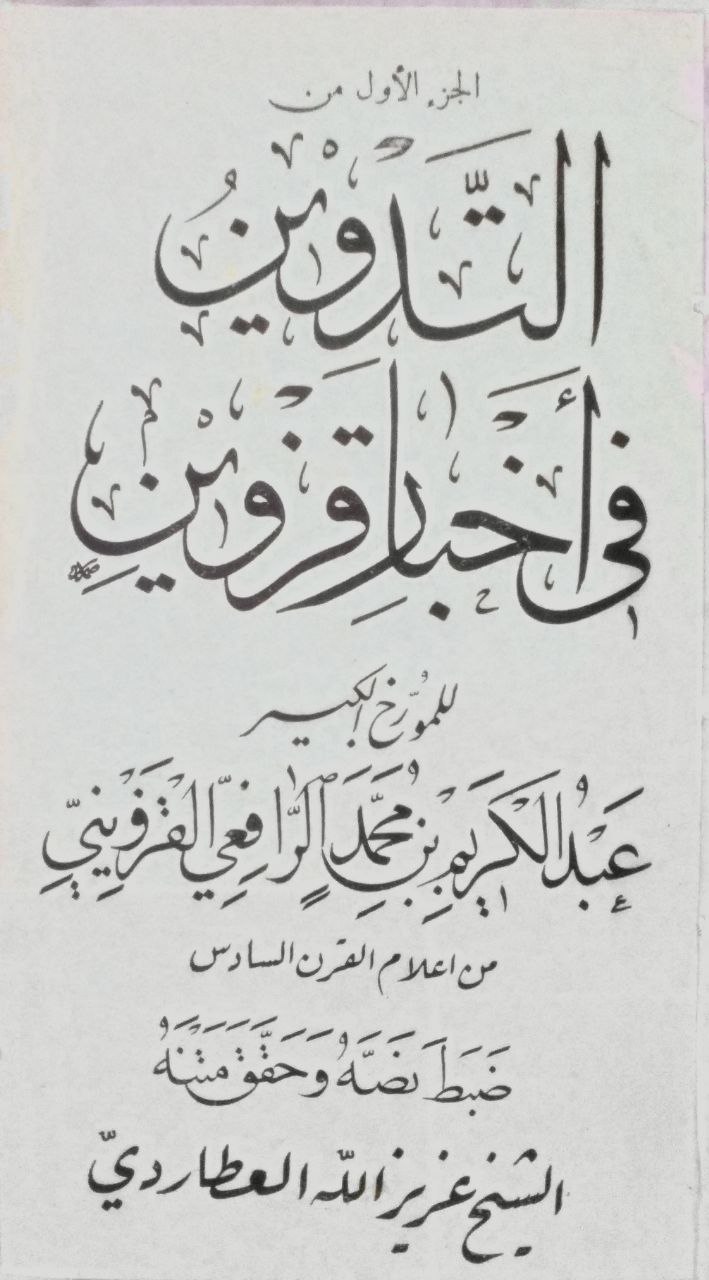 الجزء الأول من
التَّدْوِينُ
فِى أَخْبَارِ قَزْوِيْنِ
للمؤرّخ الكبير
عَبْدُ الْكَرِيمِ بْنِ مُحَمَّدَ الرَّافِعِيِّ الْقَزْوِينِيِّ
من اعلام القرن السادس
ضَبَطَ نَصَّهُ وَحَقَّقَ مَتْنَهُ
الشيخ عزيز اللّه العطارديّ